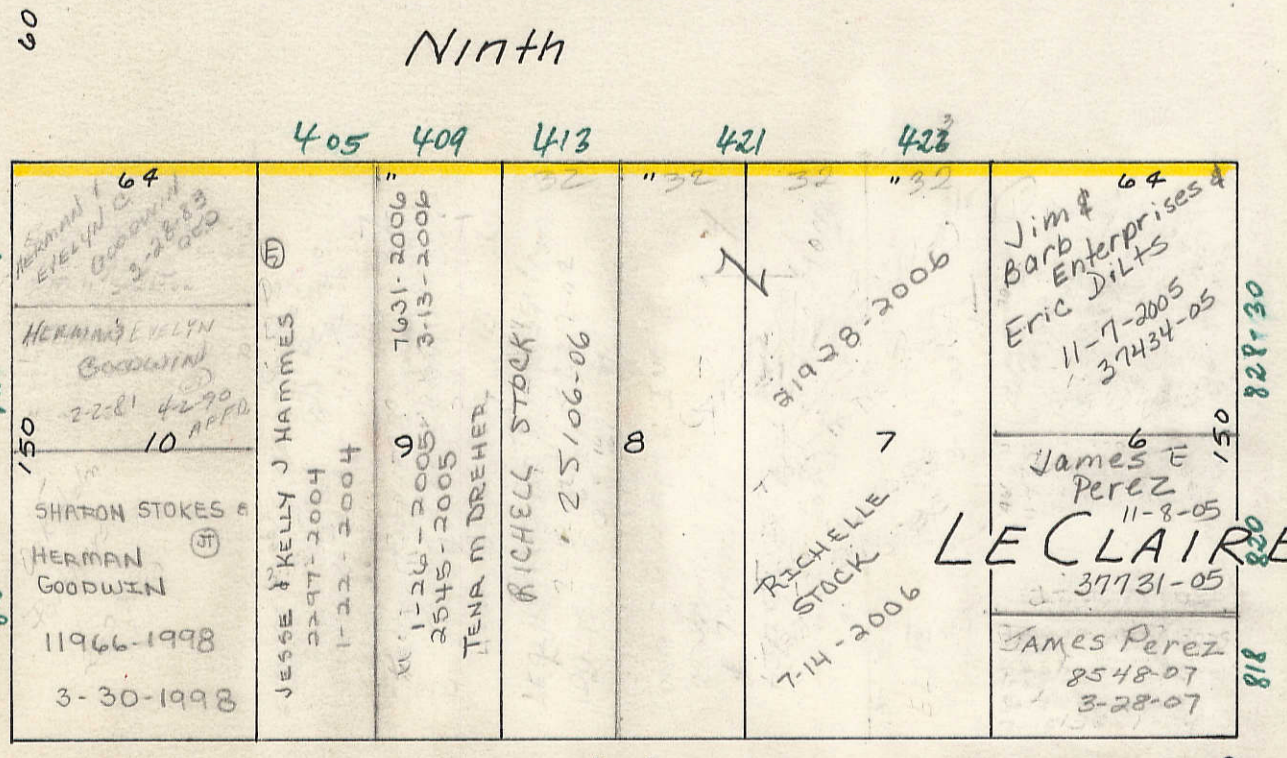 60
Ninth
405 409 413 421 423
64
HERMAN
EVELYN C.
GOODWIN
HERMAN EVELYN
GOODWIN
2-2-81 4-2-90
AFFD
150
10
SHARON STOKES &
HERMAN
GOODWIN
11966-1998
3-30-1998
JESSE & KELLY J HAMMES
2297-2004
1-22-2004
"
7631-2006
3-13-2006
9
1-26-2005
2545-2005
TENA M DREHER
32
RICHELL STOCK
25106-06
" 32
8
32
" 32
21928-2006
7
RICHELLE
STOCK
7-14-2006
64
Jim &
Barb
Enterprises &
Eric Dilts
11-7-2005
37434-05
828-30
150
6
James E
Perez
11-8-05
LECLAIRE
820
37731-05
James Perez
8548-07
3-28-07
818